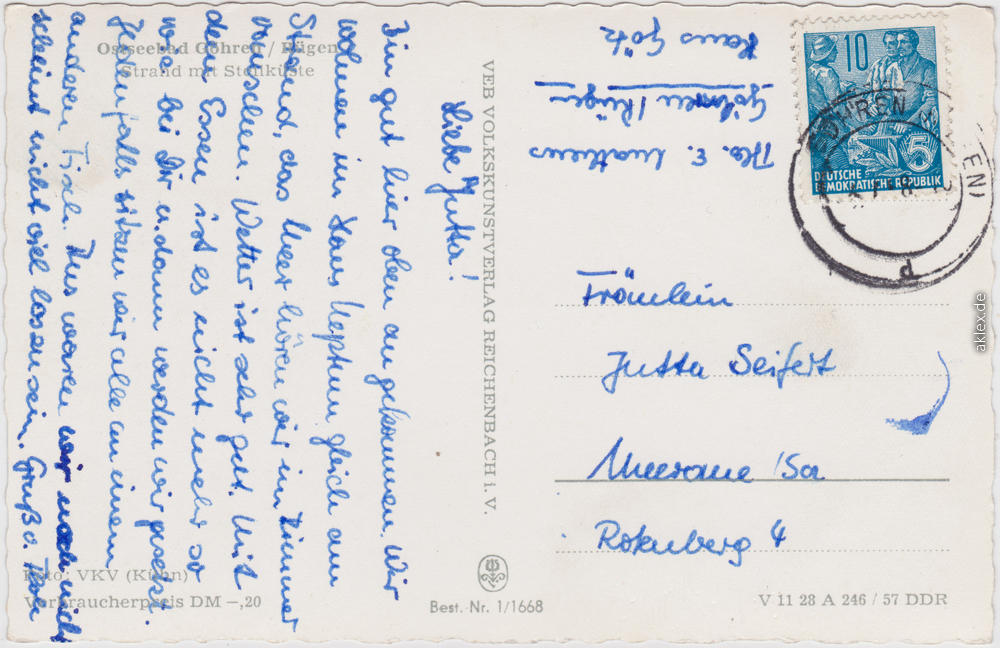 Ostseebad Göhren / Rügen
Strand mit Steilküste
Liebe Jutta!
Bin gut hier oben angekommen. Wir
wohnen im Haus Neptun gleich am
Strand, das Meer hören wir im Zimmer
rauschen. Wetter ist sehr gut. Mit
dem Essen ist es nicht mehr so
wie bei Dir u. dann werden wir gesetzt.
Jedenfalls sitzen wir alle an einem
anderen Tisch. Tus waren wir noch nicht
scheint nicht viel los zu sein. Gruß
Foto: VKV (Kühn)
Verbraucherpreis DM –,20
VEB VOLKSKUNSTVERLAG REICHENBACH i. V.
Best.-Nr. 1/1668
Haus Götz
Göhren / Rügen
10
5
DEUTSCHE
DEMOKRATISCHE REPUBLIK
GÖHREN (RÜGEN)
Fräulein
Jutta Seifert
Meerane /Sa
Rotenberg 4
V 11 28 A 246 / 57 DDR
aklex.de